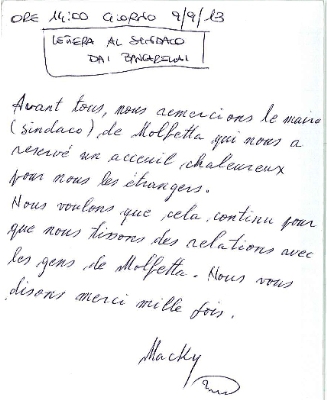 ORE MIDO GIORNO 9/9/13
LEŃERA AL SINDACO
DAI BANCARELLAI
Avant tous, nous remercions le maire
(sindaco) de Molfetta qui nous a
reservé un acceuil chaleureux
pour nous les étrangers.
Nous voulons que cela continu pour
que nous tissons des relations avec
les gens de Molfetta. Nous vous
disons merci mille fois.
Macky